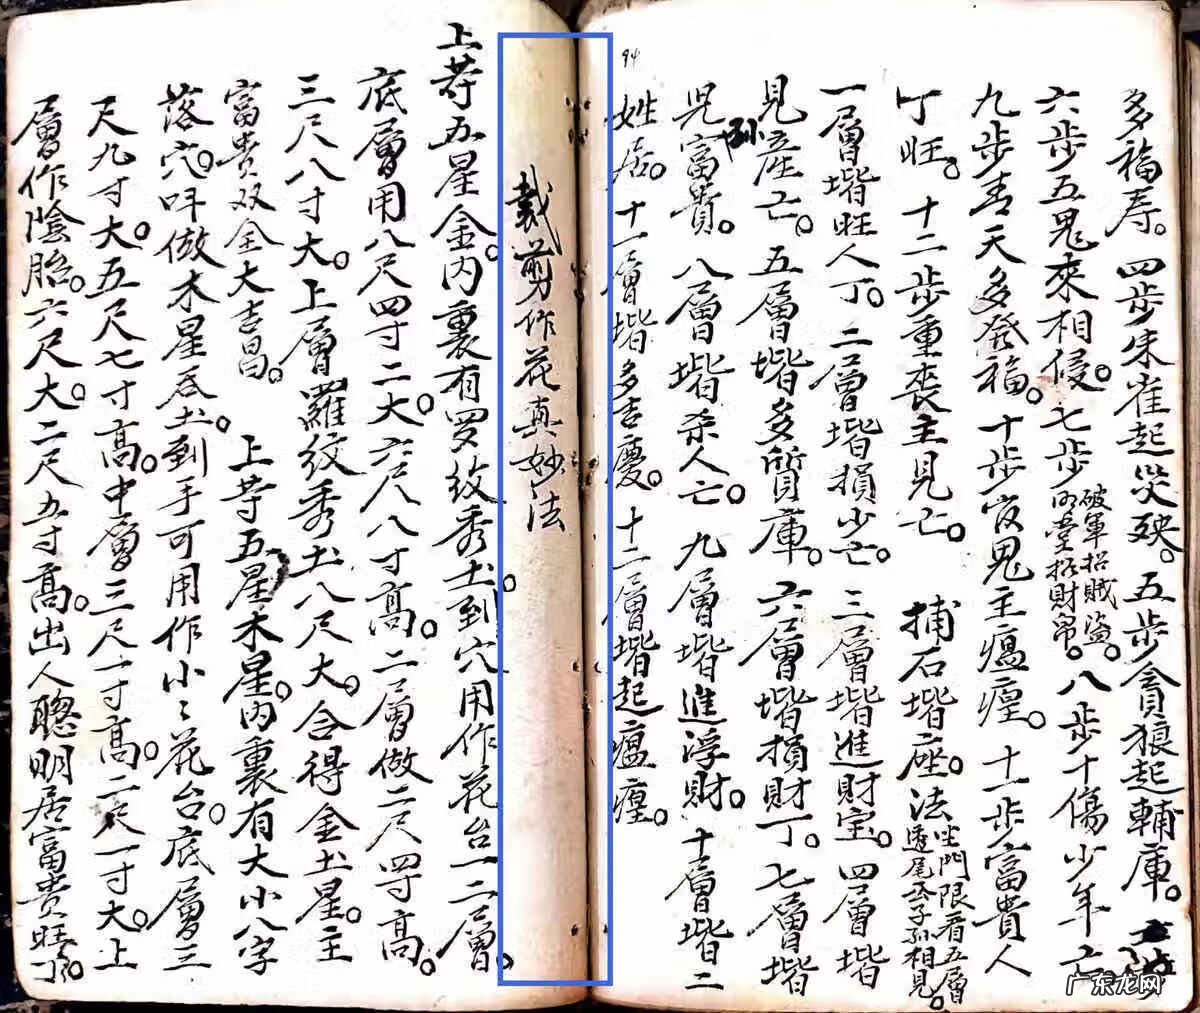 94
多福寿。四步朱雀起災殃。五步貪狼起輔庫。
六步五鬼來相侵。七步破軍招賊盗。明堂招財帛。八步十傷少年亡
九步青天多發福。十步夜鬼主瘟瘟。十一步富貴人
丁旺。十二步重喪主見亡。 捕石堦座。法坐門限看五層透尾丞子孫相見。
一層堦旺人丁。二層堦損少亡。三層堦進財宝。四層堦
見産亡。五層堦多質庫。六層堦損財丁。七層堦
児孫富貴。八層堦杀人亡。九層堦進浮財。十層堦二
姓居。十一層堦多吉慶。十二層堦起瘟瘟。
裁剪作花真妙法
上等五星金。内裏有罗紋秀土。到穴用作花台一二層。
底層用八尺四寸二大。六尺八寸高。二層做二尺四寸高。
三尺八寸大。上層羅紋秀土八尺大。合得金土星。主
富貴双全大吉昌。 上等五星木星。内裏有大小八字
落穴。吽做木星吞土。到手可用作小小花台。底層三
尺九寸大。五尺七寸高。中層三尺一寸高。二尺一寸大。上
層作陰胎。六尺大。二尺五寸高。出人聰明居富貴旺丁。
广东龙网